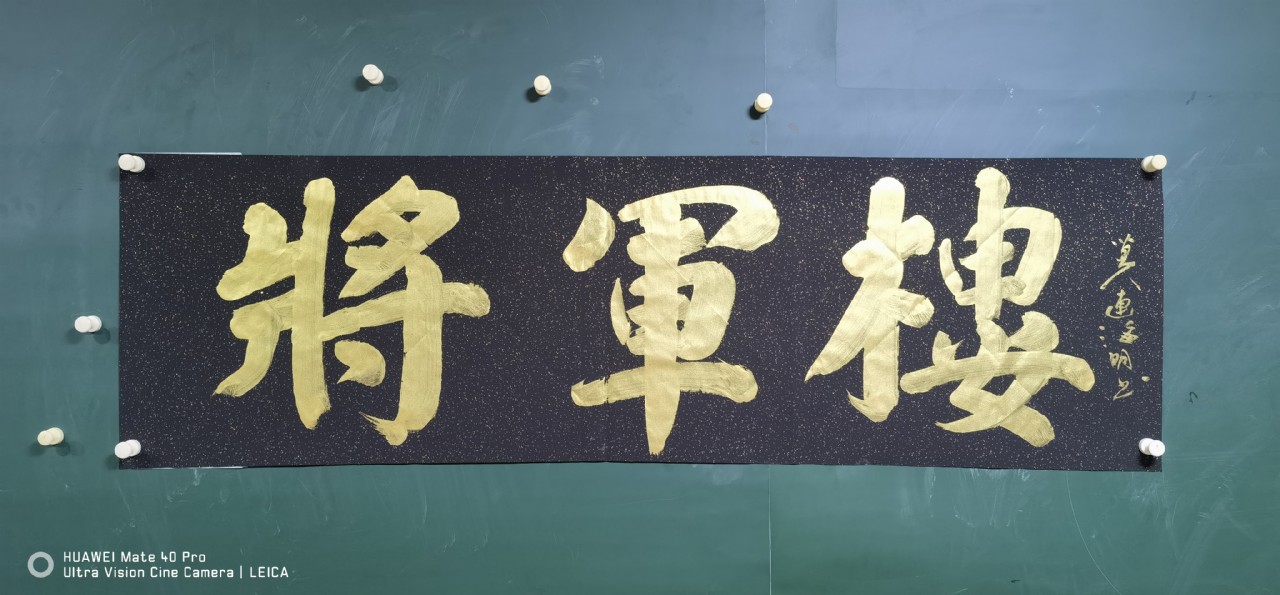 將軍樓
連 明書
HUAWEI Mate 40 Pro
Ultra Vision Cine Camera | LEICA